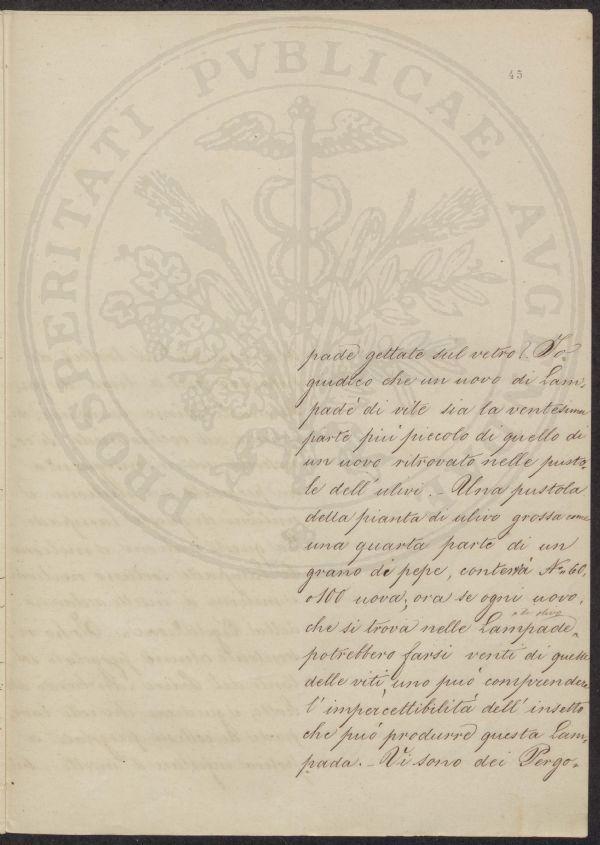 45
PROSPERITATI PVBLICAE AVGENDAE
pade gettate sul vetro?. Io
giudico che un uovo di Lam-
pade di vite sia la ventesima
parte più piccolo di quello di
un uovo ritrovato nelle pusto-
le dell'ulivi. - Una pustola
della pianta di ulivo grossa come
una quarta parte di un
grano di pepe, conterrà N.º 60,
o 100 uova; ora se ogni uovo,
che si trova nelle Lampade
potrebbero farsi venti di quelle
delle viti, uno può comprendere
l'impercettibilità dell'insetto
che può produrre questa Lam-
pada. - Vi sono dei Pergo-